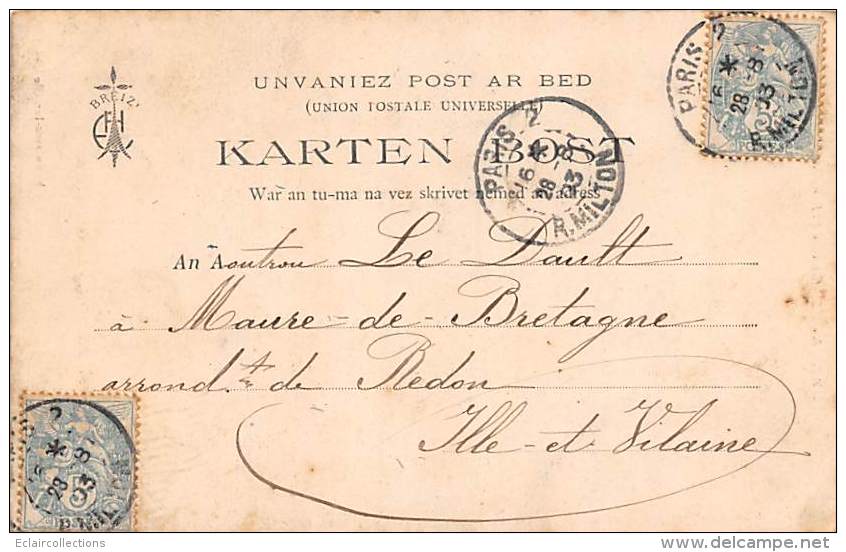 BREIZ
UNVANIEZ POST AR BED
(UNION POSTALE UNIVERSELLE)
KARTEN BOST
War an tu-ma na vez skrivet nemed an adress
An Aoutrou Le Dault
à Maure-de-Bretagne
arrond.t de Redon
Ille-et-Vilaine
PARIS 2
28 -8
03
R. MILTON
PARIS 2
28 -8
03
R. MILTON
5
POSTES
28 -8
03
R. MILTON
5
Eclaircollections
delcampe.net